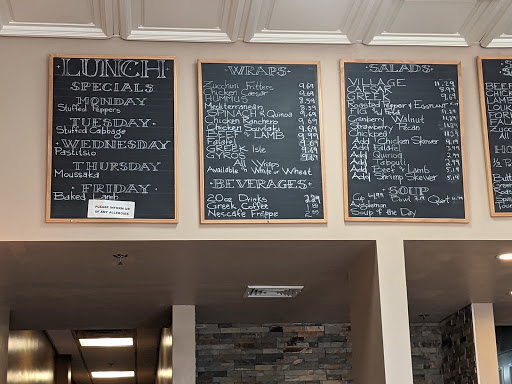 LUNCH
SPECIALS
MONDAY
Stuffed Peppers
TUESDAY
Stuffed Cabbage
WEDNESDAY
Pastitsio
THURSDAY
Moussaka
FRIDAY
Baked Lamb
PLEASE INFORM US
OF ANY ALLERGIES
WRAPS
Zucchini Fritters 9.69
Chicken Caesar 9.69
HUMMUS 8.59
Mediterranean 8.59
SPINACH & Quinoa 9.69
Chicken Ranchero 9.69
Chicken Souvlaki 9.69
BEEF & LAMB 9.99
Falafel
GREEK Isle 9.69
GYROS
Wraps
Available in White or Wheat
BEVERAGES
20oz Drinks
Greek Coffee
Nescafe Frappe
SALADS
VILLAGE 11.29
CAESAR 8.99
GREEK 9.69
Roasted Pepper & Eggplant
FIG
Cranberry Walnut 11.29
Strawberry Pecan
Chickpea
Add Chicken Skewer 4.19
Add Falafel
Add Quinoa
Add Tabouli
Add Beef & Lamb 5.19
Add Shrimp Skewer 5.19
SOUP
Cup Bowl Quart
Avgolemono
Soup of the Day